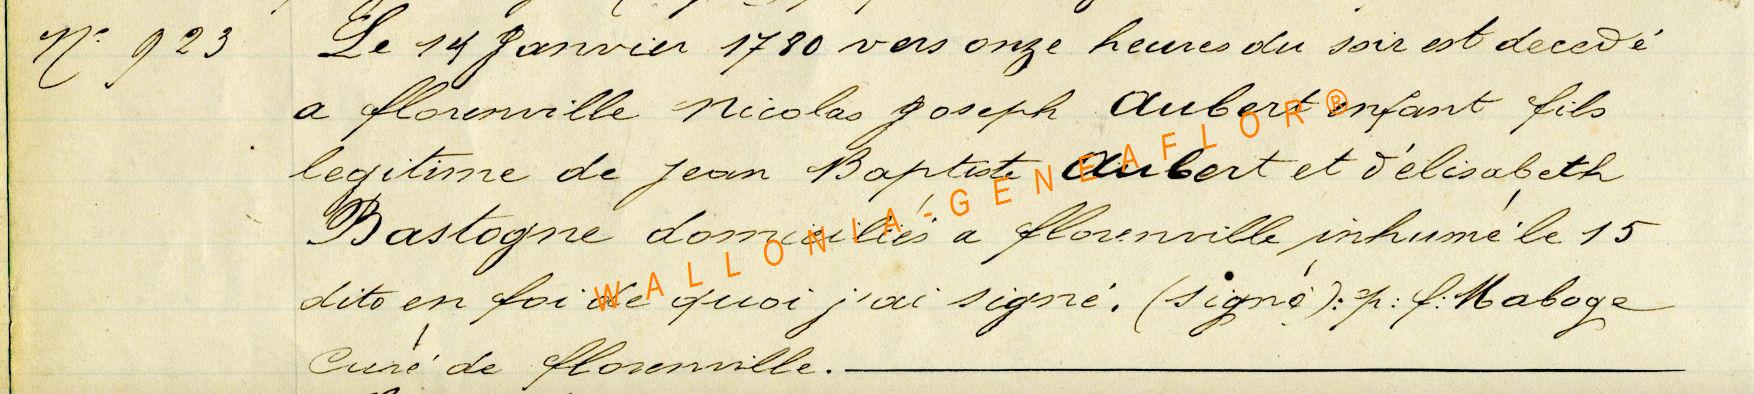 N° 923 Le 14 Janvier 1780 vers onze heures du soir est decedé
a florenville Nicolas Joseph Aubert enfant fils
legitime de jean Baptiste Aubert et d'élisabeth
Bastogne domiciliés a florenville inhumé le 15
dito en foi de quoi j'ai signé. (signé): p: f: Maboge
Curé de florenville.
WALLONIA-GENEAFLOR®